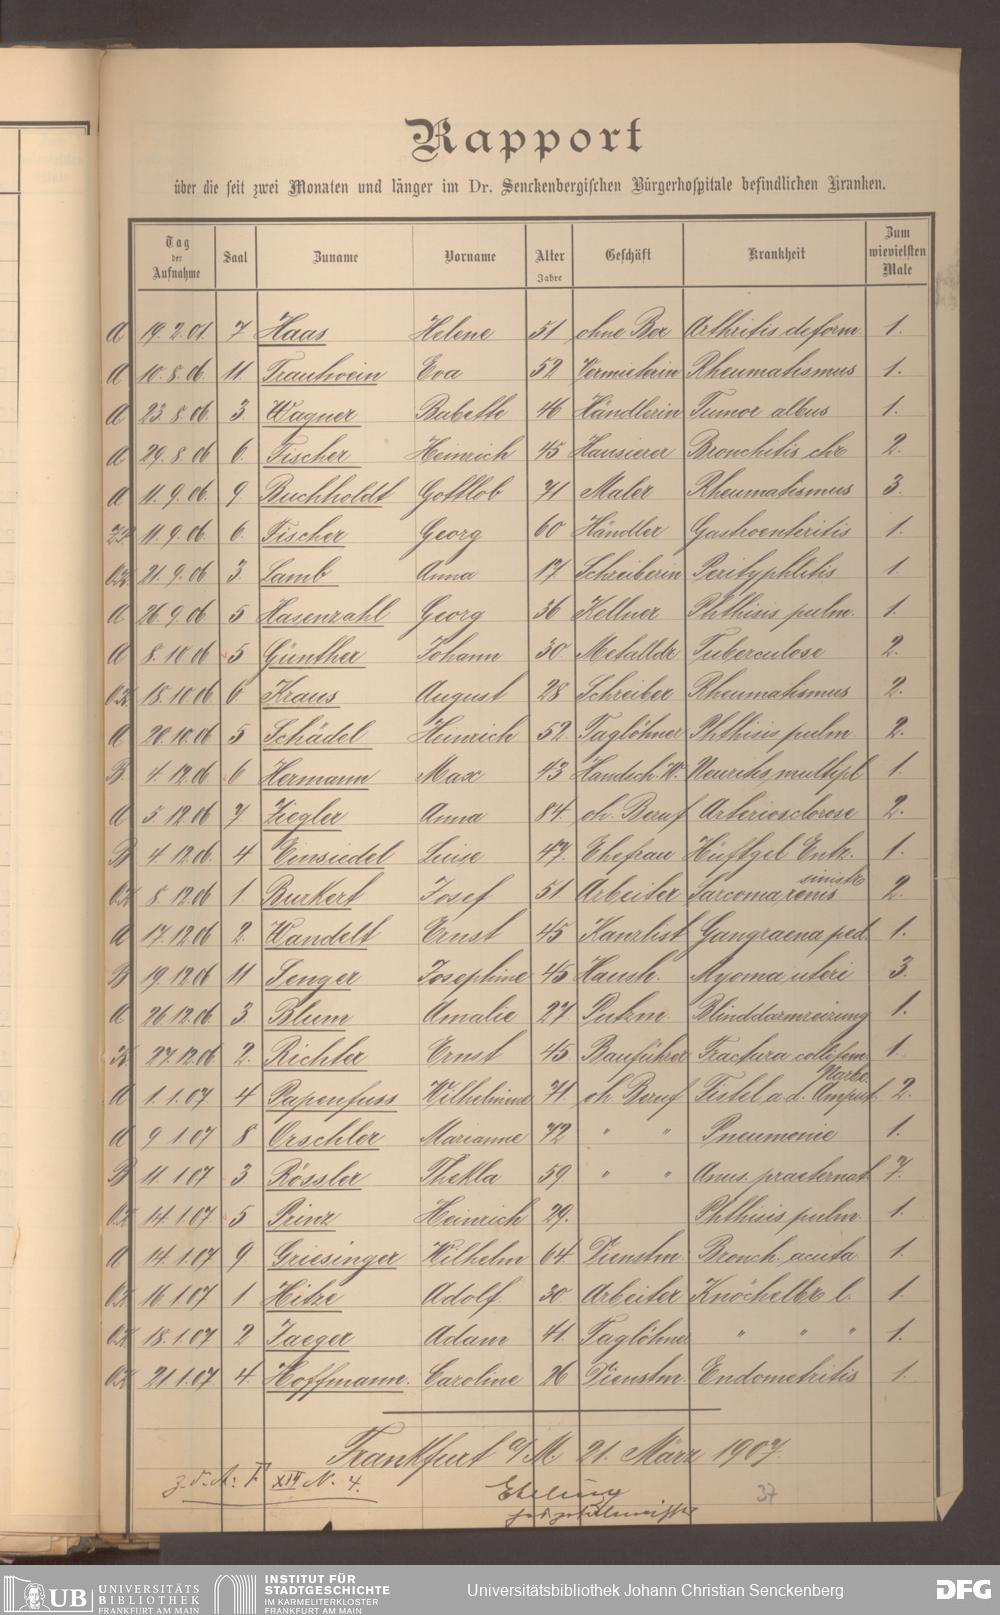 Rapport
über die seit zwei Monaten und länger im Dr. Senckenbergischen Bürgerhospitale befindlichen Kranken.
Tag der Aufnahme Saal Zuname Vorname Alter Jahre Geschäft Krankheit Zum wievielsten Male
A 19.2.01. 7 Haas Helene 51 ohne Ber Arthritis deform. 1.
A 10.8.06. 11. Trautwein Eva 52 Vermieterin Rheumatismus 1.
A 23.8.06. 3. Wagner Babette 46 Händlerin Tumor albus 1.
A 29.8.06 6. Fischer Heinrich 45 Hausierer Bronchitis chr. 2.
A 11.9.06. 9. Buchholdt Gottlob 71 Maler Rheumatismus 3.
11.9.06. 6. Fischer Georg 60 Händler Gastroenteritis 1.
O.K. 21.9.06. 3. Lamb Anna 17 Schreiberin Perityphlitis 1
A 26.9.06 5 Hasenzahl Georg 36 Kellner Phthisis pulm. 1.
A 8.10.06 5 Günther Johann 30 Metalldr Tuberculose 2.
O.K. 18.10.06 6 Kraus August 28 Schreiber Rheumatismus 2.
A 20.10.06 5 Schädel Heinrich 52. Taglöhner Phthisis pulm 2.
B 4.12.06 6 Hermann Max 43 Neuritis multipl 1.
A 5.12.06 7 Ziegler Anna 84. oh. Beruf Arteriosclerose 2.
B 4.12.06. 4 Einsiedel Luise 47. Ehefrau Hüftgel Entz. 1.
O.K. 8.12.06 1 Burkert Josef 51 Arbeiter Sarcoma renis sinistr 2.
A 17.12.06 2. Wandelt Ernst 45 Kanzlist Gangraena ped. 1.
B 19.12.06 11 Senger Josephine 45 Haush. Myoma uteri 3.
A 26.12.06. 3. Blum Amalie 27. Putzm. Blinddarmreizung 1.
K. 27.12.06. 2. Richter Ernst 45 Bauführer Fractura colli fem. 1.
A 1.1.07 4 Papenfuss Wilhelmine 71. oh Beruf Fistel a. d. Amput. Narbe. 2.
A 9 1 07 8 Orschler Marianne 72 " " Pneumonie 1.
B 11.1.07 3 Rössler Thekla 59 " " Anus praeternat 7.
O.K. 14.1.07 5 Prinz Heinrich 29. Phthisis pulm. 1.
A 14.1.07 9 Griesinger Wilhelm 64. Dienstm. Bronch. acuta 1.
O.K. 16.1.07 1 Hitze Adolf. 30 Arbeiter Knöchelbr l. 1.
O.K. 18.1.07 2 Jaeger Adam 41. Taglöhner " " " 1.
O.K. 21.1.07 4. Hoffmann. Caroline 26 Dienstm Endometritis 1.
Frankfurt a/M 21. März 1907.
z. d. A: F XIV N. 4.
Ebeling
37
UB UNIVERSITÄTS BIBLIOTHEK FRANKFURT AM MAIN
INSTITUT FÜR STADTGESCHICHTE IM KARMELITERKLOSTER FRANKFURT AM MAIN
Universitätsbibliothek Johann Christian Senckenberg
DFG